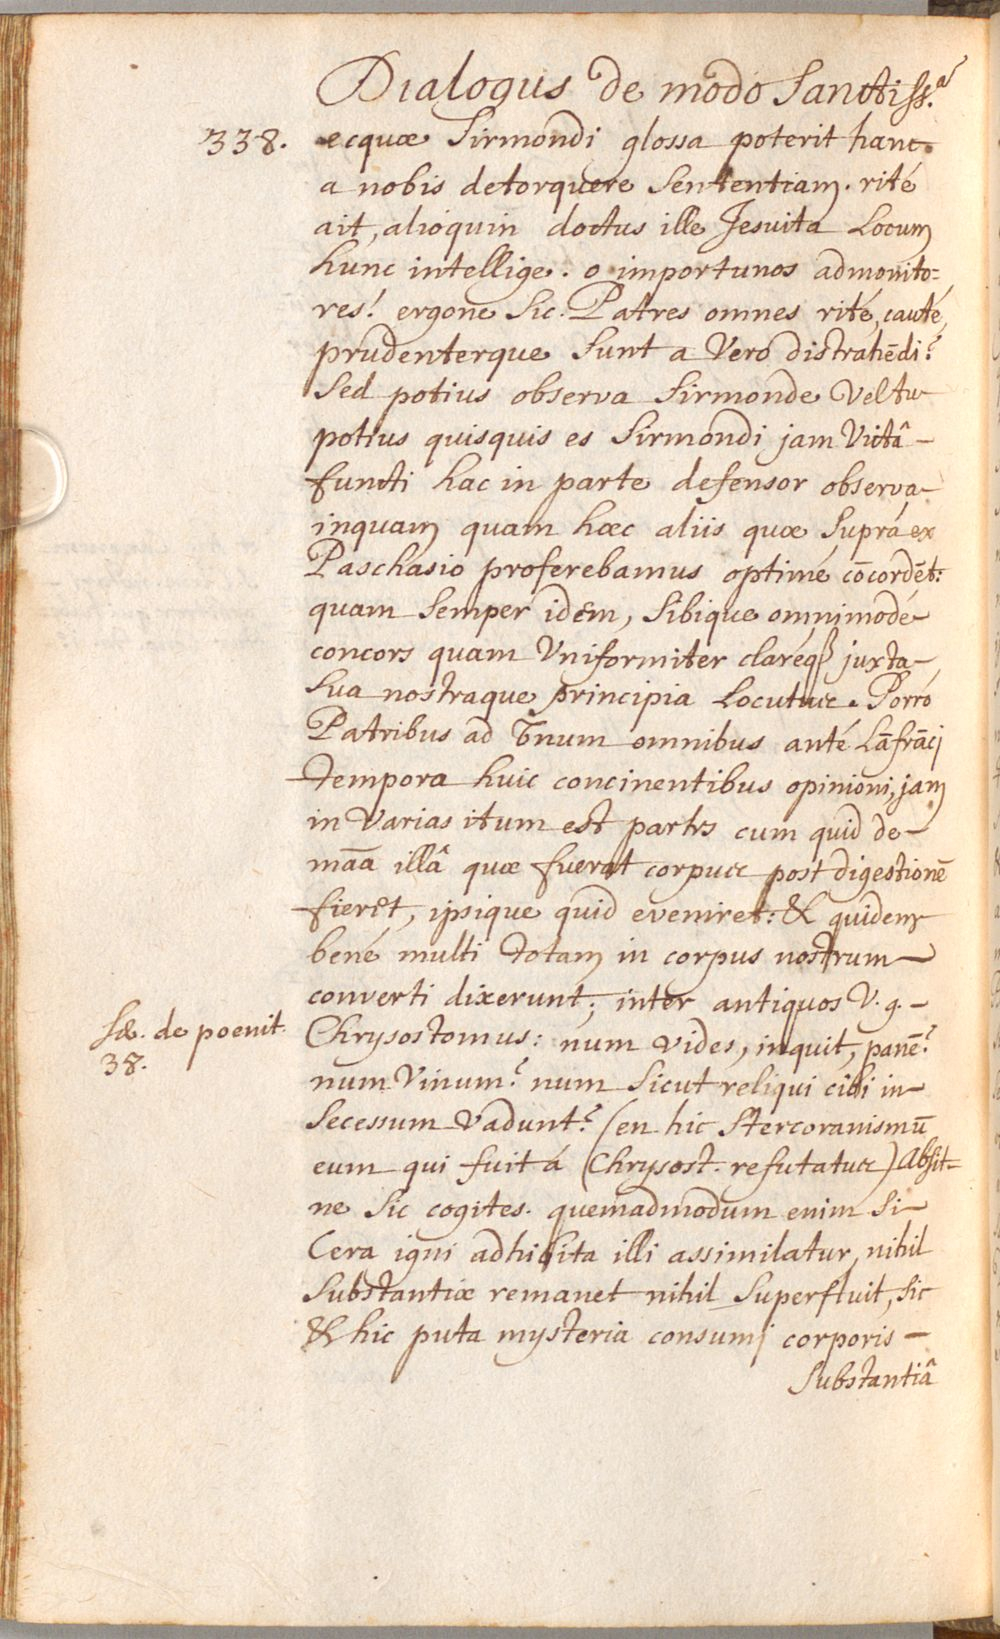 Dialogus de modo Sanctiss.ª
338. ecquæ Sirmondi glossa poterit hanc
a nobis detorquere Sententiam. rité
ait, alioquin doctus ille Jesuita Locum
hunc intellige. o importunos admonito=
res! ergone Sic. Patres omnes rité, cauté,
prudenterque Sunt a Vero distrahēdi?
Sed potius observa Sirmonde Vel tu
potius quisquis es Sirmondi jam Vitâ
functi hac in parte defensor observa
inquam quam hæc aliis quæ Suprá ex
Paschasio proferebamus optimé cōcordēt:
quam Semper idem, Sibique omnimodé
concors quam Uniformiter claréqꝫ juxta
Sua nostraque principia Locutur. Porró
Patribus ad unum omnibus anté Lāfrācj
tempora huic concinentibus opinioni, jam
in Varias itum est partes cum quid de
māa illâ quæ fuerat corpus post digestionē
fieret, ipsique quid eveniret: & quidem
bené multi totam in corpus nostrum
converti dixerunt; inter antiquos V.g.
Sæ. de poenit.
38.
Chrysostomus: num vides, inquit, panē?
num Vinum? num Sicut reliqui cibi in
Secessum Vadunt? (en hic Stercoranismū
eum qui fuit á Chrysost. refutatus) Absit
ne Sic cogites. quemadmodum enim Si
Cera igni adhibita illi assimilatur, nihil
Substantiæ remanet nihil Superfluit, Sic
& hic puta mysteria consumj corporis
Substantiâ